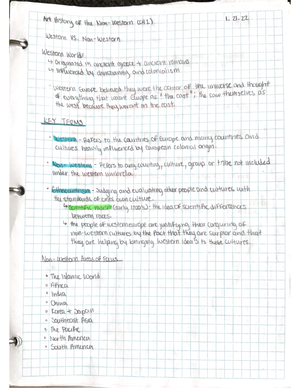 Art History of the Non-Western (Ch1).
1.21.22
Western vs. Non-Western.
Western World:
↳ Originated in ancient Greece + ancient
↳ Influenced by Christianity and colonialism
Western Europe believed they were the center of the universe and thought
of everything that wasn't Europe as "the east"; they saw themselves as
the west because they weren't on the east.
KEY TERMS
• Western - Refers to the countries of Europe and many countries and
cultures heavily influenced by European colonial origin.
• Non-western - Refers to any country, culture, group or tribe not included
under the western umbrella.
• Ethnocentrism - Judging and evaluating other people and cultures with
the standards of one's own culture.
↳ Scientific racism (early 1900s): the idea of scientific differences
between races.
↳ the people of western europe are justifying their conquering of
non-western cultures by the fact that they are superior and that
they are helping by bringing western ideas to those cultures.
Non-Western Areas of Focus:
• The Islamic World
• Africa
• India
• China
• Korea + Japan
• Southeast Asia
• The Pacific
• North America
• South America